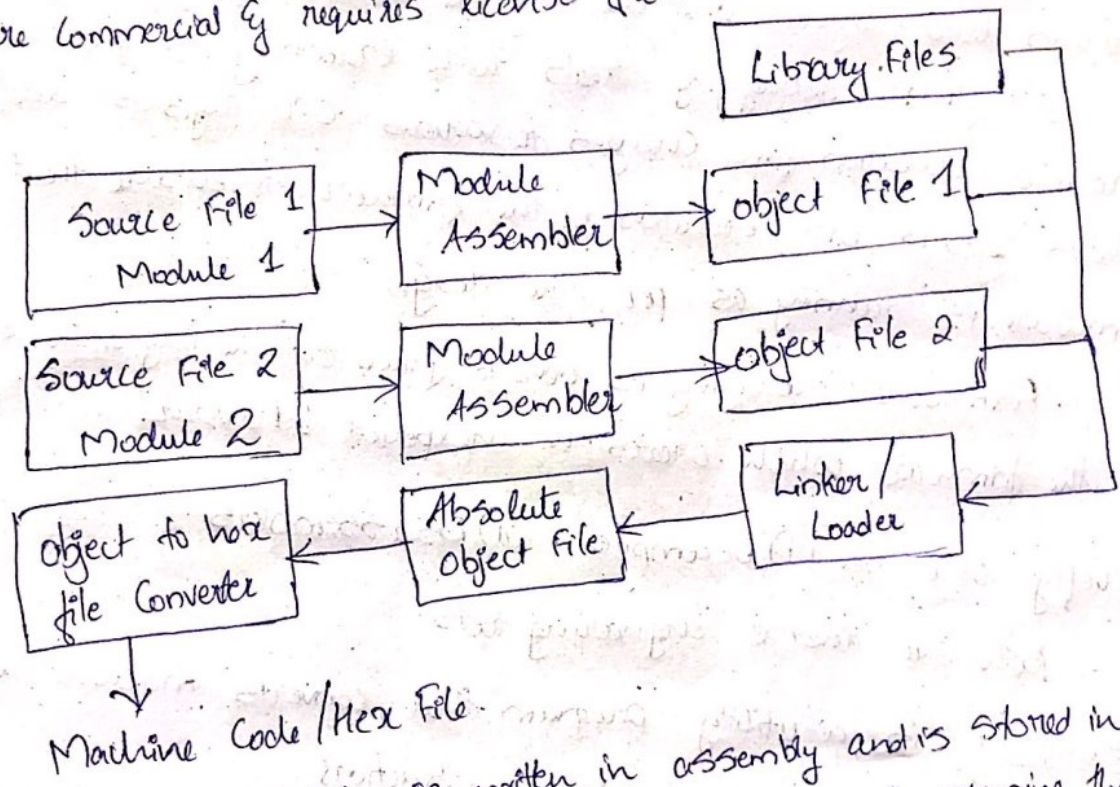 re Commercial & requires license
Library Files
Source File 1
Module 1
Module
Assembler
object File 1
Source File 2
Module 2
Module
Assembler
object File 2
Linker /
Loader
Absolute
Object File
Object to hex
file Converter
Machine Code / Hex File.
written in assembly and is stored in